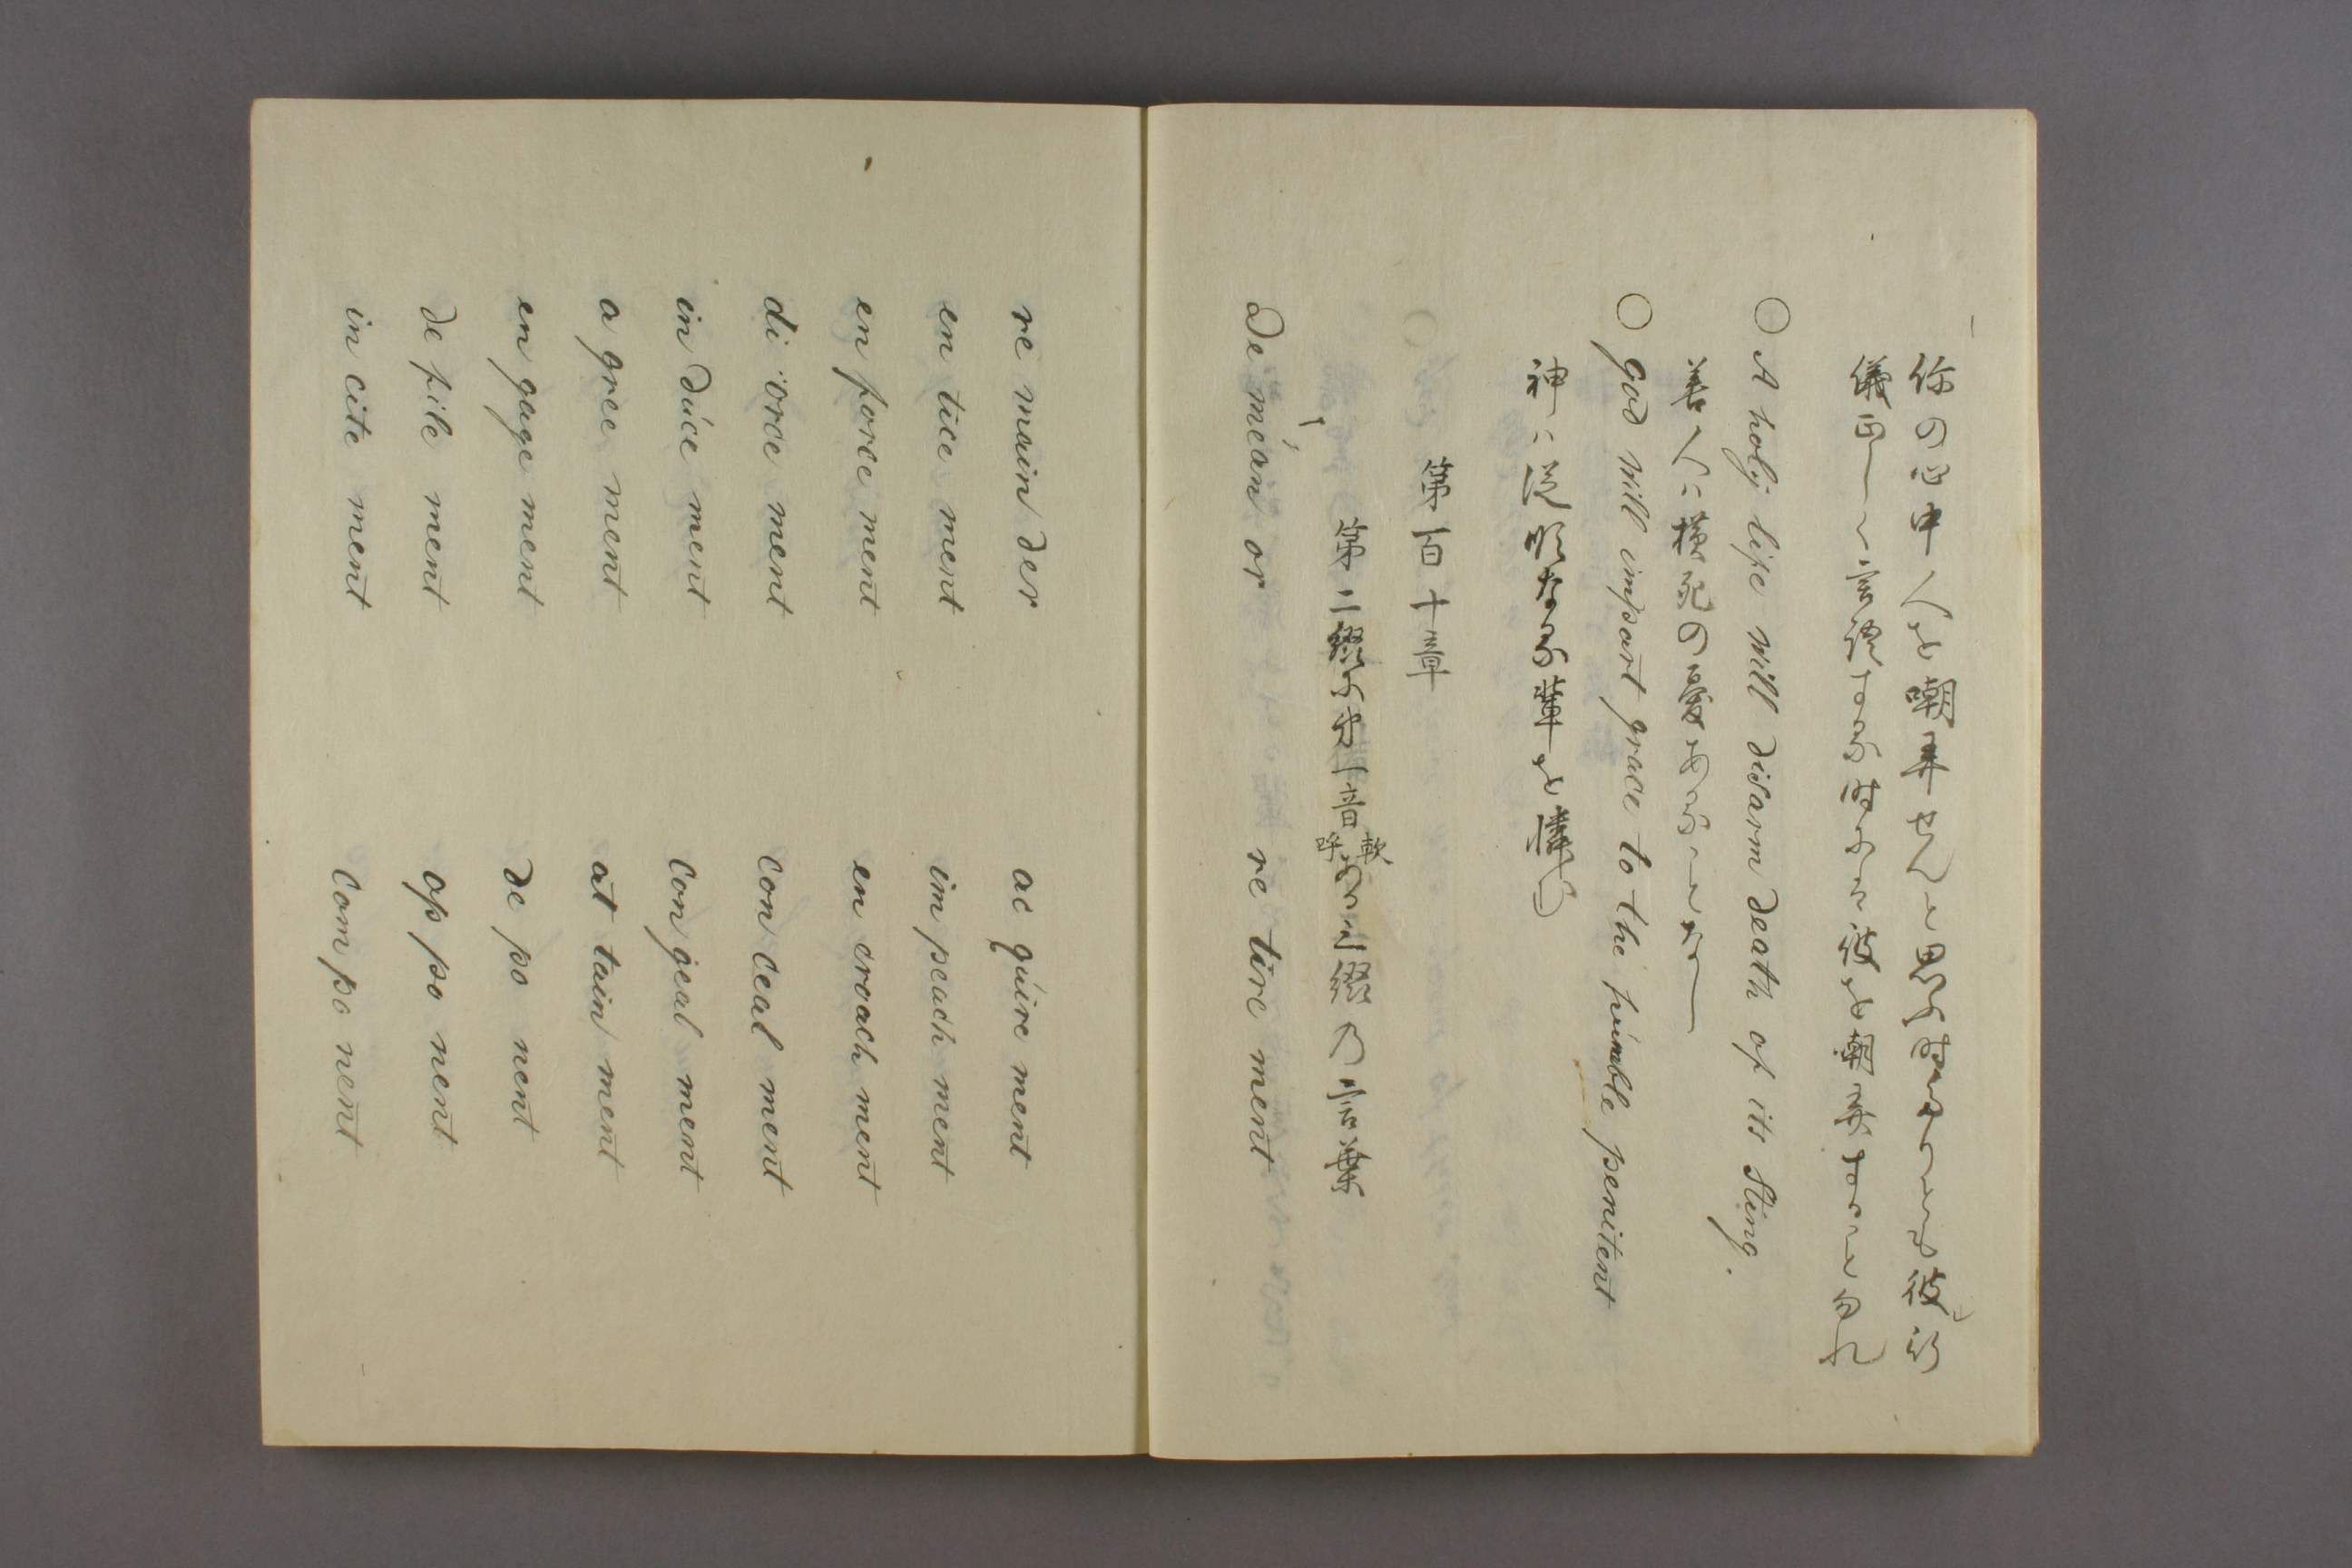 你の心中人を嘲弄せんと思ふ時ありとも彼行
儀正しく言語する時ハ彼を嘲弄すること勿れ
○ A holy life will disarm death of its Sting.
善人ハ横死の憂あることなし
○ God will impart grace to the humble penitent
神ハ従順なる輩を憐む
第百十章
第二綴り第一音軟呼の三綴乃言葉
De méan or re tire ment
re main der ac qúire ment
en tice ment im peach ment
en force ment en croach ment
di vorce ment con ceal ment
in dúce ment con geal ment
a gree ment at tain ment
en gage ment de po nent
de file ment op po nent
in cite ment com po nent